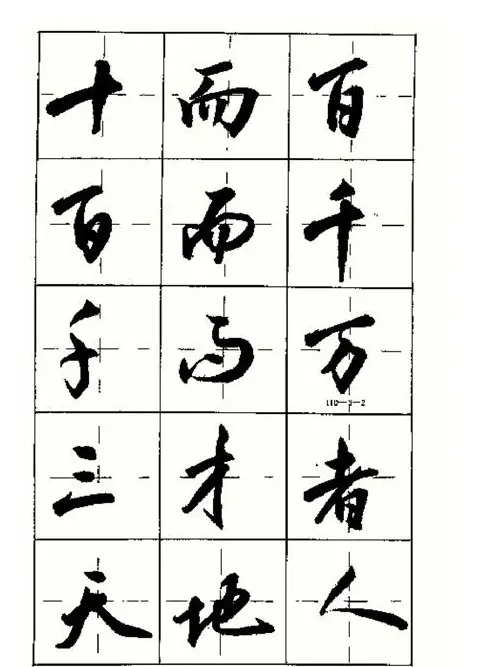 十而百
百而千
千而万
110-3-2
三才者
天地人